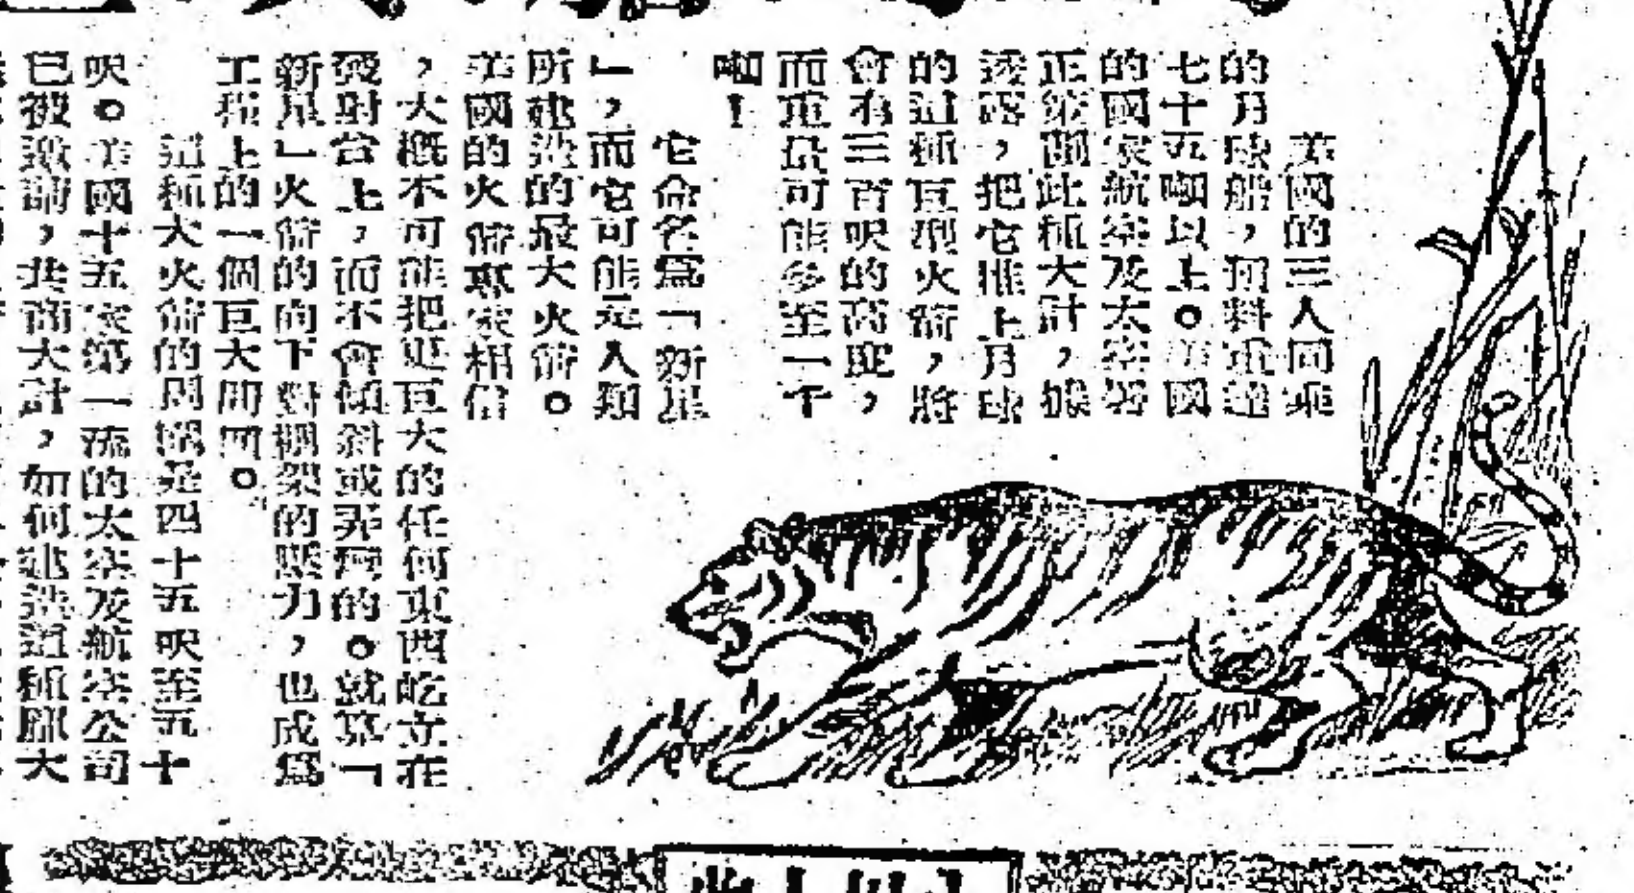 美國的三人同乘
的月球船，預料重達
七十五噸以上。美國
的國家航空及太空署
正策劃此種大計，據
透露，把它推上月球
的這種巨型火箭，將
會有三百呎的高度，
而重量可能多至一千
噸！
它命名爲「新星
」，而它可能是人類
所建造的最大火箭。
美國的火箭專家相信
，大概不可能把更巨大的任何東西屹立在
發射台上，而不會傾斜或弄彎的。就算「
新星」火箭的向下對棚架的壓力，也成爲
工程上的一個巨大問題。
這種大火箭的周圍是四十五呎至五十
呎。美國十五家第一流的太空及航空公司
已被邀請，共商大計，如何建造這種龐大